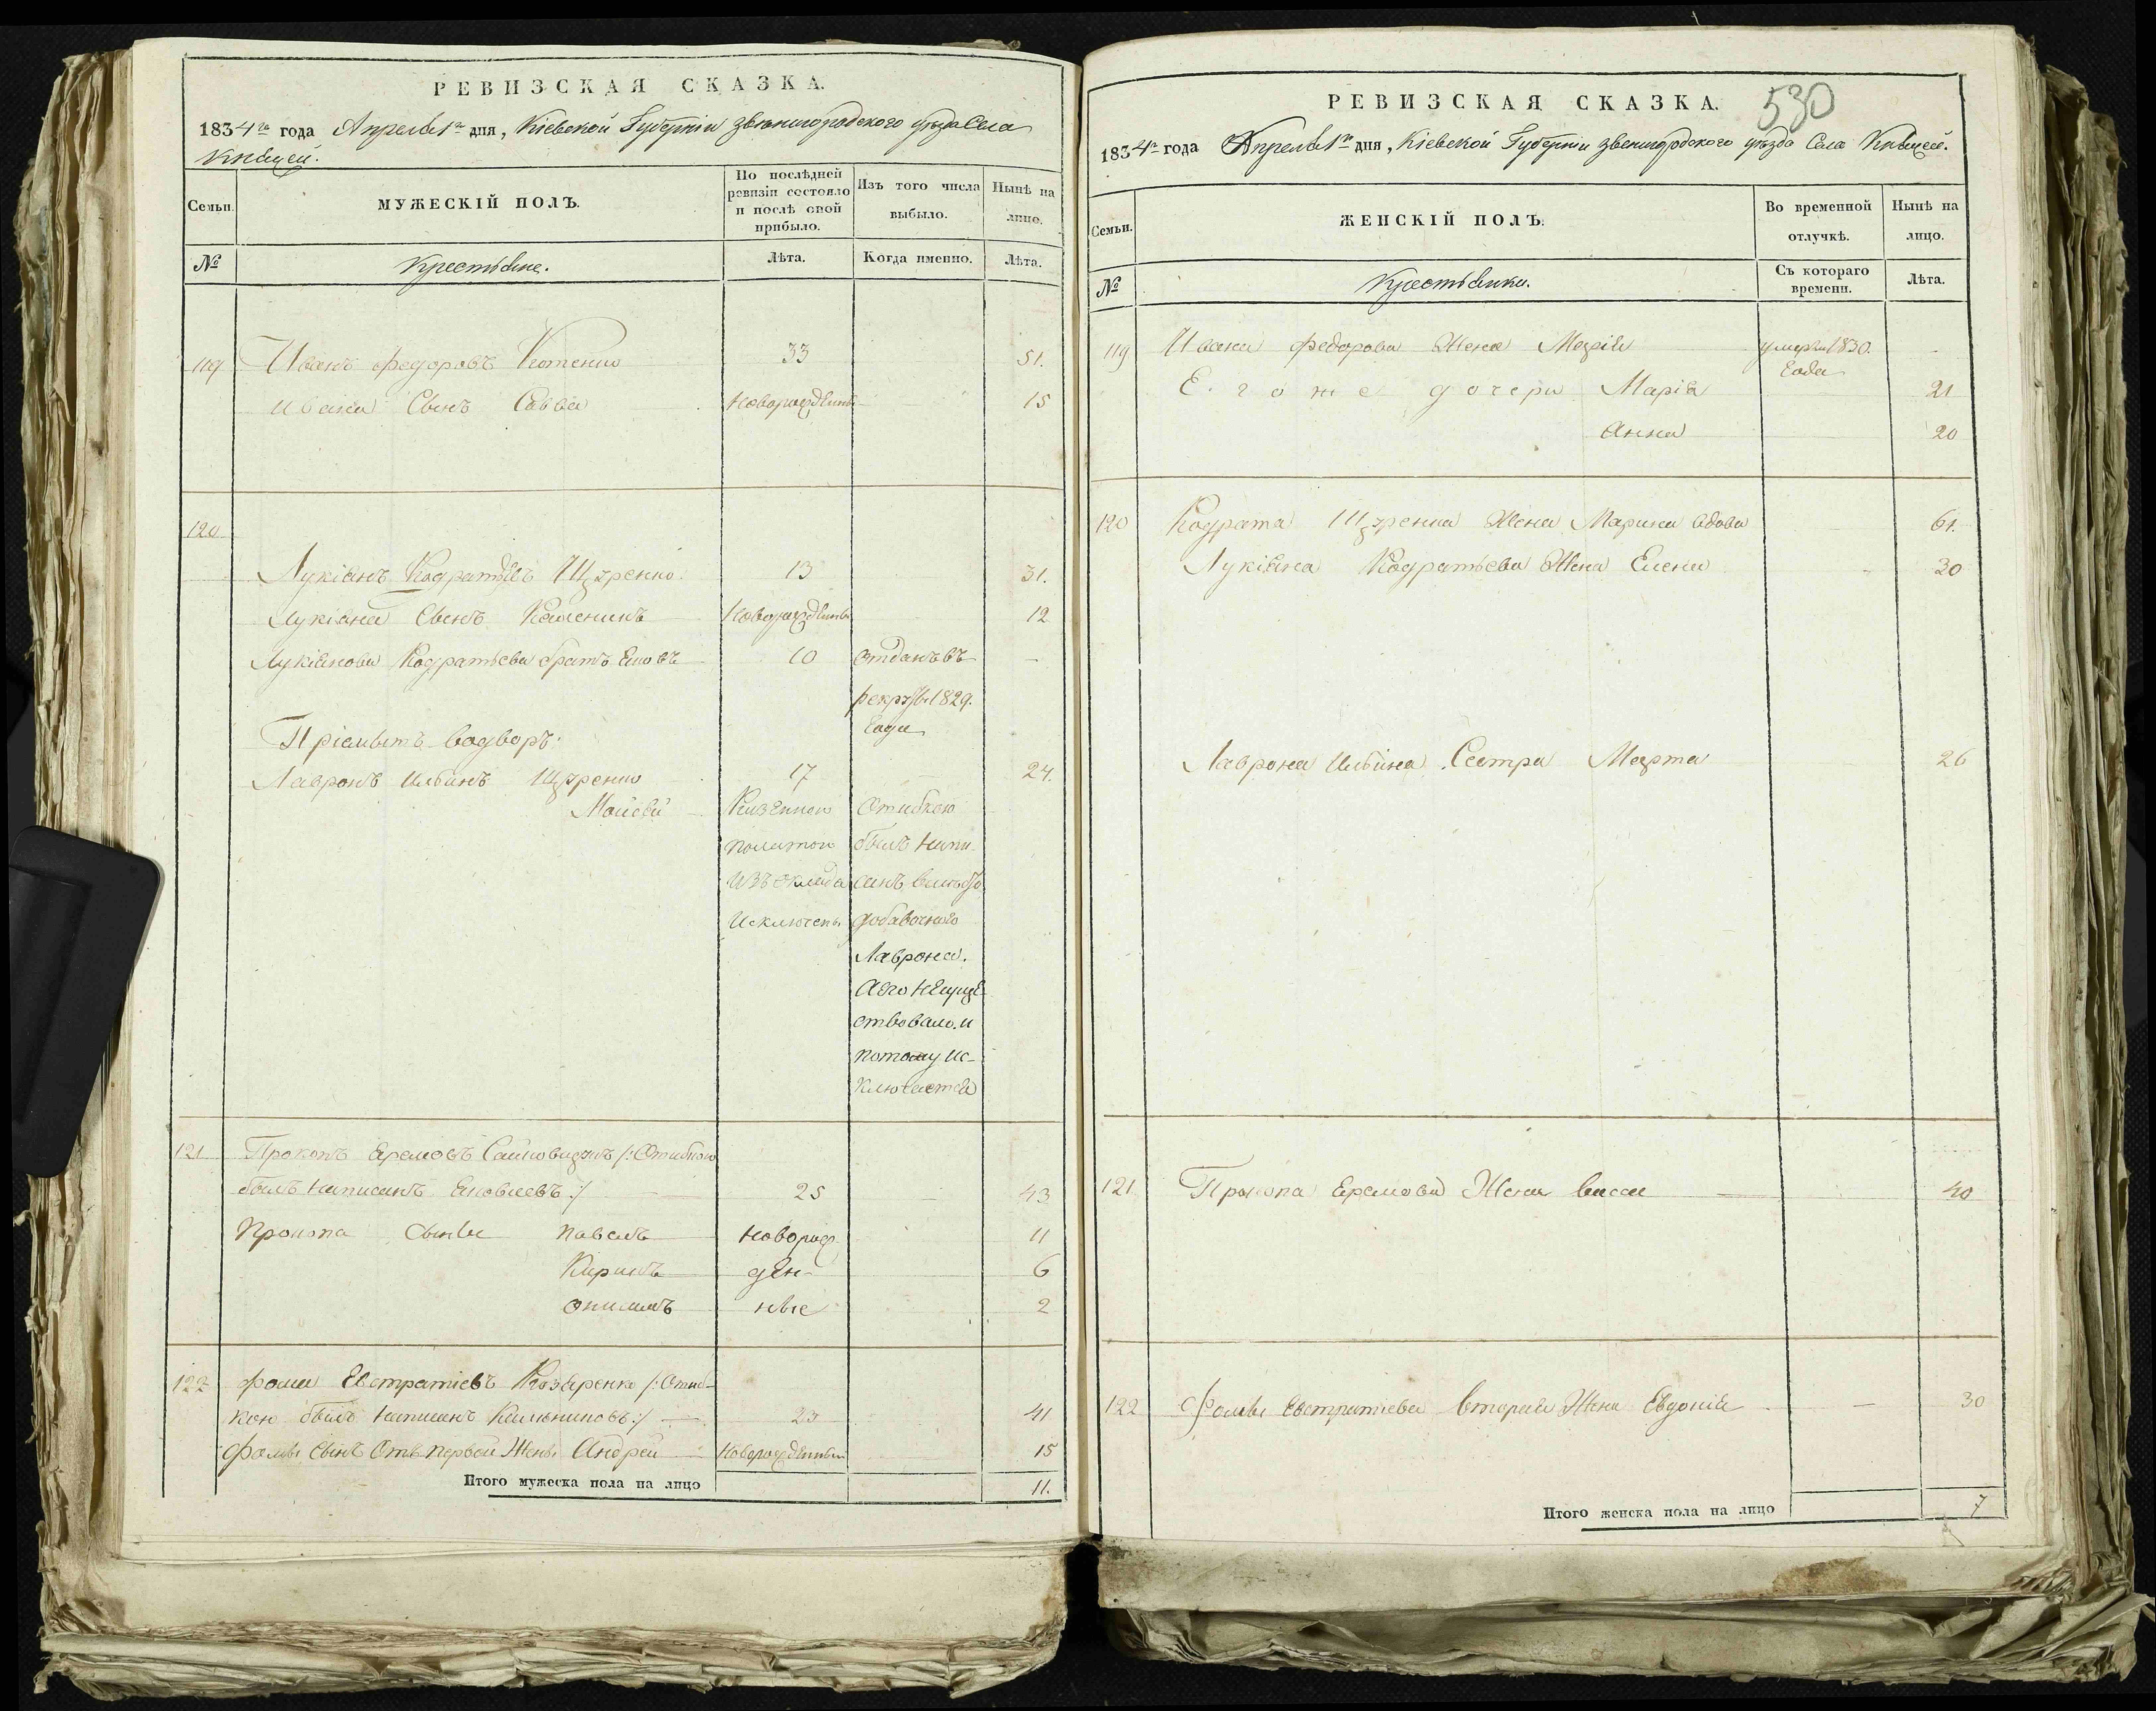 РЕВИЗСКАЯ СКАЗКА.
1834го года Апреля 1го дня, Кіевской Губерніи Звенигородского уѣзда Села
Семьи.
МУЖЕСКІЙ ПОЛЪ.
По послѣдней ревизіи состояло и послѣ оной прибыло.
Изъ того числа выбыло.
Нынѣ на лицо.
№
Крестьяне.
Лѣта.
Когда именно.
Лѣта.
119 Иванъ Федоровъ 33 51.
Ивана Сынъ Савва Новорожденный 15
120
Лукіянъ Кодратьевъ 13 31.
Лукіяна Сынъ Новорожденный 12
Лукіянова Кодратьева братъ Яковъ 10 отданъ въ
рекруты 1829.
года
Пріемытъ водворъ:
Лавронъ Ильинъ 17 24.
Мойсей Казенною Ошибкою
полатою былъ напи-
изъ оклада санъ вмѣсто
Исключенъ добавочного
Лаврона.
А его несуще-
ствовало. и
потому ис-
ключается
121 Прокопъ Яремовъ /: Ошибкою
былъ написанъ Яковлевъ :/ 25 43
Прокопа Сыны Павелъ новорож- 11
Кирилъ ден- 6
ные 2
122 Фома Евстратіевъ Козаренко /: Ошиб-
кою былъ написанъ :/ 23 41
Фомы Сынъ Отъ первой Жены Андрей Новорожденный 15
Итого мужеска пола на лицо 11.
530
РЕВИЗСКАЯ СКАЗКА.
1834го года Апреля 1го дня, Кіевской Губерніи Звенигородского уѣзда Села
Семьи.
ЖЕНСКІЙ ПОЛЪ.
Во временной отлучкѣ.
Нынѣ на лицо.
№
Крестьянки.
Съ котораго времени.
Лѣта.
119 Ивана Федорова Жена Марія умерла 1830.
года
Его же дочери Марія 21
Анна 20
120 Кодрата Жена Марина вдова 61.
Лукіяна Кодратьева Жена Елена 30
Лаврона Ильина Сестра Марта 26
121 Прокопа Яремова Жена Васса 40
122 Фомы Евстратіева вторая Жена Евдокія 30
Итого женска пола на лицо 7